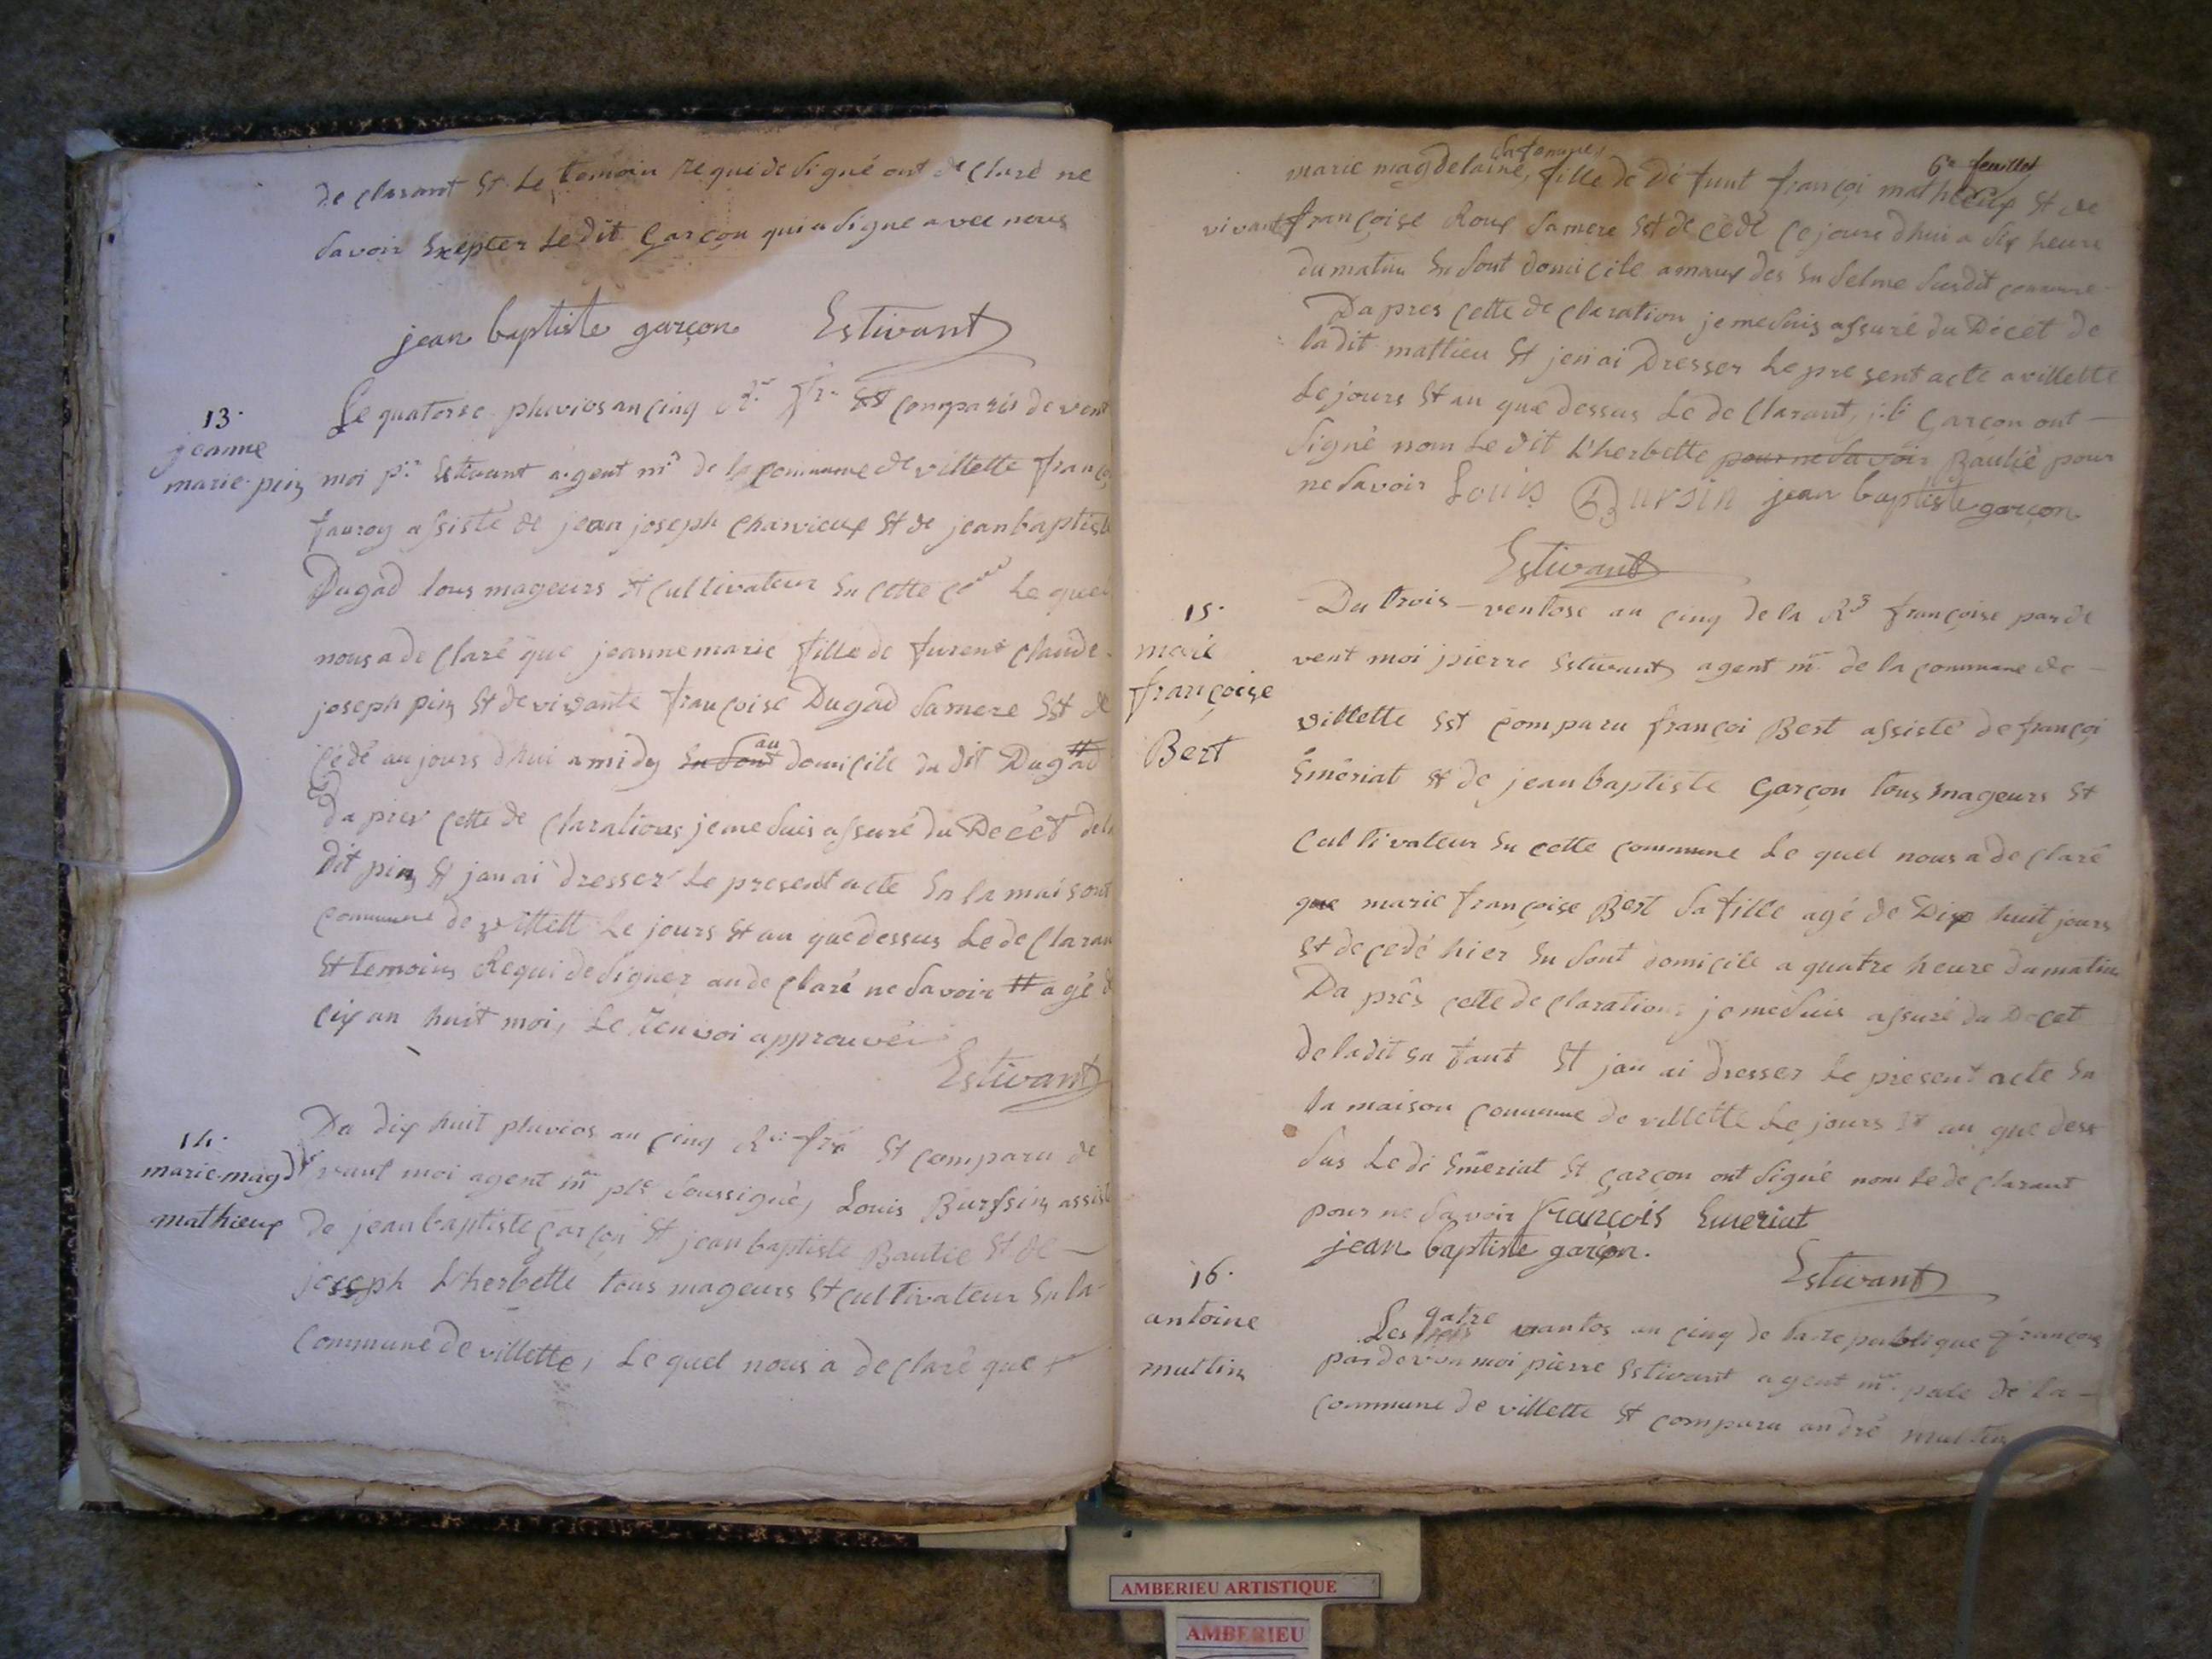 de clarant Et Le temoin Requi de Signé ont de Claré ne
Savoir Exepter Ledit Garçon qui a Signe avec nous
jean baptiste garçon Estivant
13.
jeanne
marie pin
Le quatorse pluvios an cinq Est comparis de vent
moi pre Estivant agent ml de la commune de villette franço
fauroy assisté de jean joseph Charvieux Et de jean baptiste
Dugad tous mageurs Et Cultivateur En Cette Ce Le quel
nous a de Claré que jeanne marie fille de furent Claude
joseph pin Et de vivante françoise Dugad Sa mere Est de
Cédé au jours dhui a midy En Sont au domicile du dit Dugad #
Da pres Cette de Clarations je me Suis assuré du Décét de la
Dit pin Et jan ai dresser Le present acte En la maisont
Commune de villett Le jours Et an que dessus Le de Claran
Et temoins Requi de Signer an de Claré ne Savoir # agé d
Cix an huit moi, Le Renvoi approuvé
Estivant
14.
marie-magd
mathieux
Du dix huit pluvios an Cinq Rue fra Et Comparu de
vant moi agent ml ple Soussigné, Louis Burssin assisté
de jean baptiste Garçon Et jean baptiste Bautie Et de
joseph L'herbette tous mageurs Et Cultivateur En la
Commune de villette, Le quel nous a de Claré que
6e feuillet
Sa femme,
marie magdelaine, fille de Dé funt françoi mathieux Et de
vivant françoise Roux Sa mere Est de Cédé Ce jours dhui a dix heure
du matin En Sont domicile a En Selme Susdit Commune
Da pres Cette de Claration je me Suis assuré du Décét de
ladit mattieu Et jen ai Dresser Le present acte a villette
Le jours Et an que dessus Le de Clarant, j.b Garçon ont
Signé nom Le dit L'herbette pour ne Savoir Bautié pour
ne Savoir Louis Bursin jean baptiste garçon
Estivant
15.
marie
françoise
Bert
Du trois ventose an Cinq de la Rq françoise par de
vent moi pierre Estivant agent ml de la commune de
villette Est Comparu françoi Bert assisté de françoi
Emèriat Et de jean baptiste Garçon tous mageurs Et
Cultivateur En Cette Commune Le quel nous a de Claré
que marie françoise Bert Sa fille agé de Dix huit jours
Et de Cedé hier En Sont domicile a quatre heure du matin
Da prês Cette de Claration je me Suis assuré du Decet
de ladit En fant Et jan ai dresser Le présent acte En
la maison Commune de villette Le jours Et an que dess
Sus Le di Emeriat Et Garçon ont Signé nom Le de Clarant
pour ne Savoir françois Emeriat
jean baptiste garçon.
Estivant
16.
antoine
multin
Les quatre vantos an Cinq de la republique françoise
par devan moi pierre Estivant agent ml pale de la
Commune de villette Et Comparu andré multin
AMBERIEU ARTISTIQUE
AMBERIEU